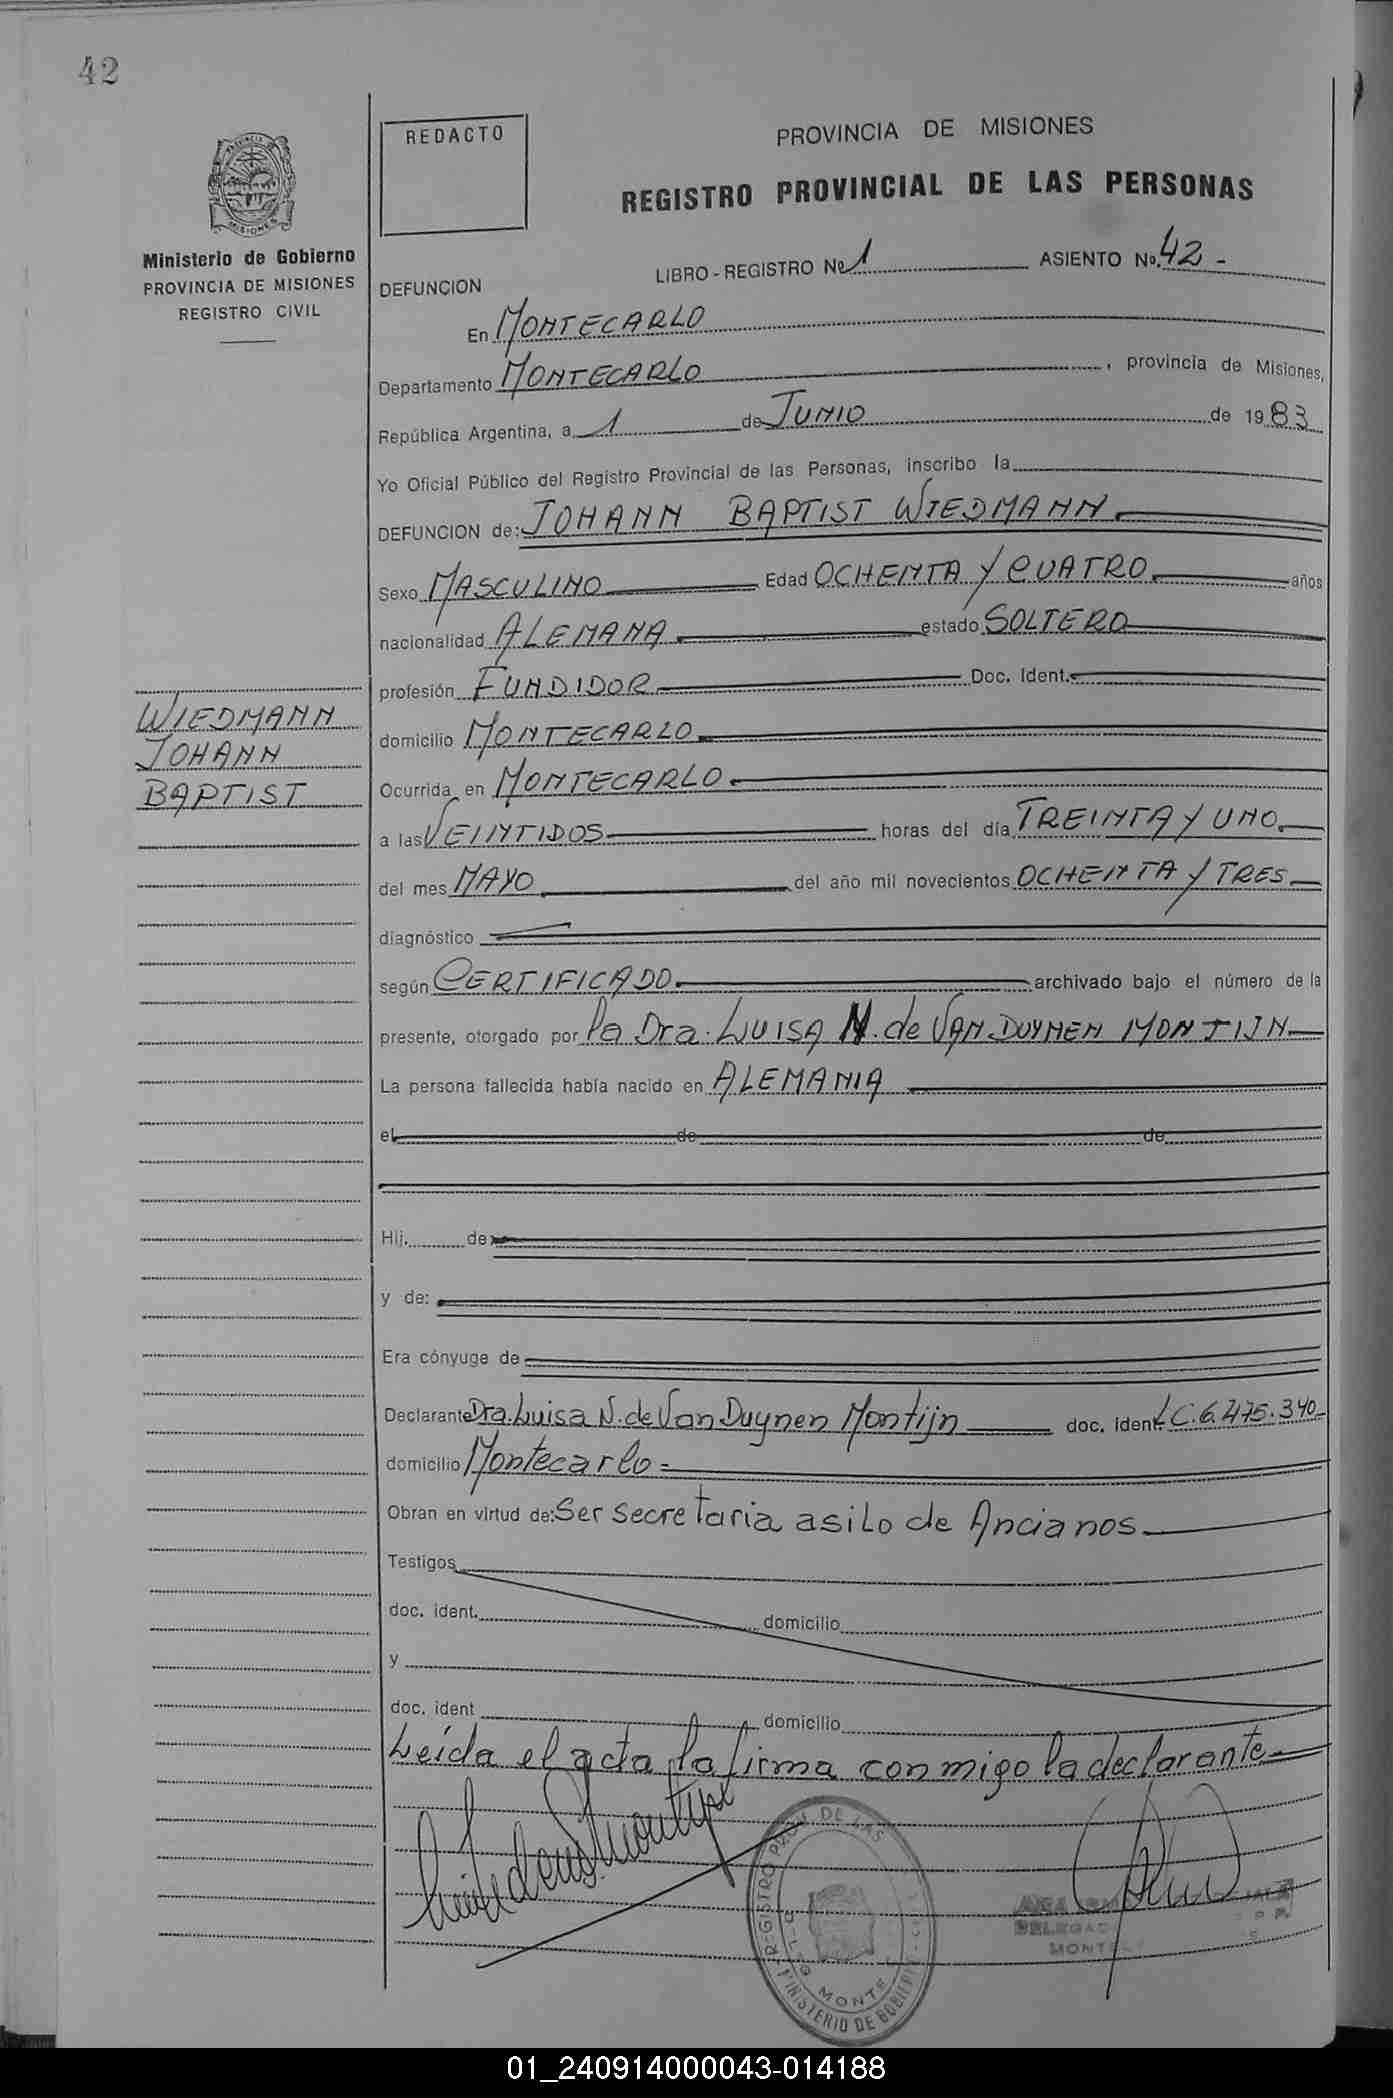 42
REDACTO
PROVINCIA DE MISIONES
REGISTRO PROVINCIAL DE LAS PERSONAS
PROVINCIA
MISIONES
Ministerio de Gobierno
PROVINCIA DE MISIONES
REGISTRO CIVIL
LIBRO - REGISTRO Nº 1 ASIENTO Nº 42 -
DEFUNCION
En MONTECARLO
Departamento MONTECARLO, provincia de Misiones,
República Argentina, a 1 de JUNIO de 1983
Yo Oficial Público del Registro Provincial de las Personas, inscribo la
DEFUNCION de: JOHANN BAPTIST WIEDMANN
Sexo MASCULINO Edad OCHENTA Y CUATRO años
nacionalidad ALEMANA estado SOLTERO
profesión FUNDIDOR Doc. Ident.
WIEDMANN
JOHANN
BAPTIST
domicilio MONTECARLO
Ocurrida en MONTECARLO
a las VEINTIDOS horas del día TREINTA Y UNO
del mes MAYO del año mil novecientos OCHENTA Y TRES
diagnóstico
según CERTIFICADO archivado bajo el número de la
presente, otorgado por la Dra. LUISA N. de VAN DUYNEN MONTIJN
La persona fallecida había nacido en ALEMANIA
el de de
Hij. de
y de:
Era cónyuge de
Declarante Dra. Luisa N. de Van Duynen Montijn doc. ident. L.C. 6.475.340
domicilio Montecarlo
Obran en virtud de: Ser secretaria asilo de Ancianos
Testigos
doc. ident. domicilio
y
doc. ident domicilio
Leída el acta la firma conmigo la declarante
REGISTRO PROV. DE LAS
MINISTERIO DE GOBIERNO
MONTE
ANA
DELEGAD
MONTE
01_240914000043-014188